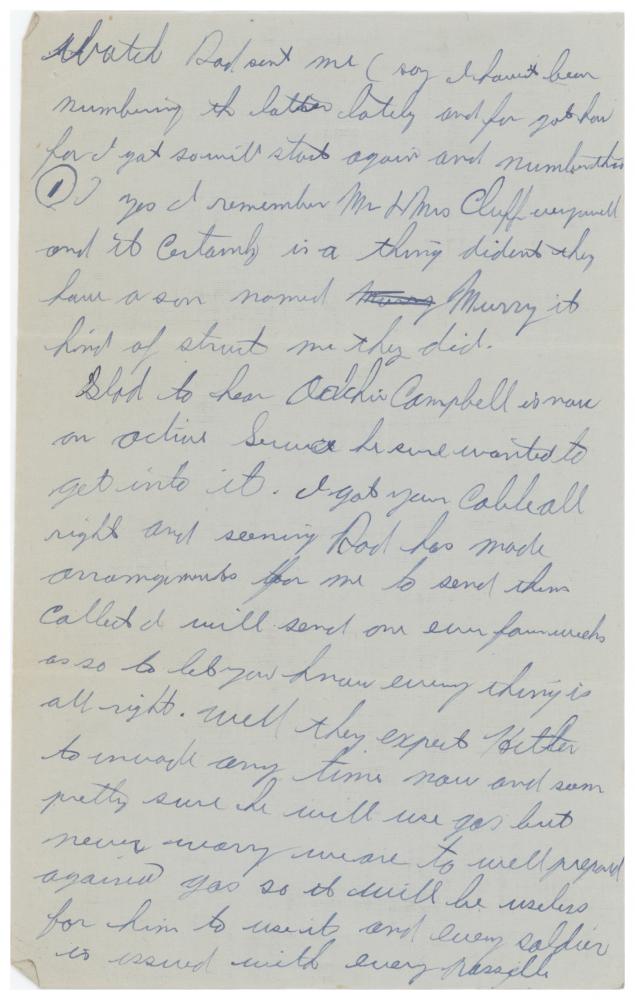 watch Dad sent me ( say I havent been
numbering th letter lately and for got how
for I got so will start again and number this
1 ) yes I remember Mr & Mrs Cluff very well
and it certainly is a thing dident they
have a son named Murry it
kind of struct me they did.
Glad to hear Archie Campbell is now
on active Service he sure wanted to
get into it. I got your cable all
right and seening Dad has made
arrangements for me to send them
collect I will send one ever four weeks
or so to let you know every thing is
all right. Well they expect Hitler
to invade any time now and seem
pretty sure he will use gas but
never worry we are to well prepared
against gas so it will be useless
for him to use it and every soldier
is issued with every possible